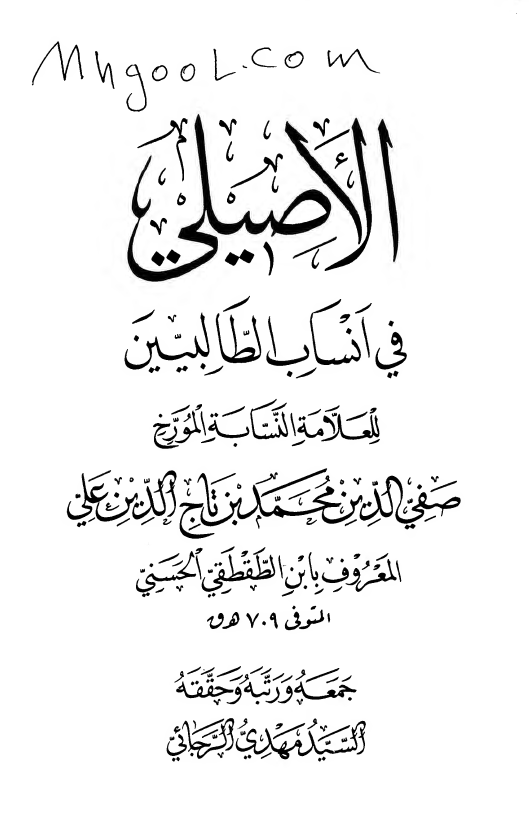 Mhgool.com
الأَصِيلي
في أَنْسَابِ الطَّالِبِيِّينَ
لِلْعَلَّامَةِ النَّسَّابَةِ الْمُؤَرِّخِ
صَفِيِّ الدِّينِ مُحَمَّد بْنِ تَاجِ الدِّينِ عَلِيّ
المَعْرُوْفِ بِابْنِ الطَّقْطَقِيّ الْحَسَنِيّ
المتوفى ٧٠٩ هـ ق
جَمَعَهُ وَرَتَّبَهُ وَحَقَّقَهُ
السَّيِّدُ مَهْدِيُّ الرَّجَائِيّ